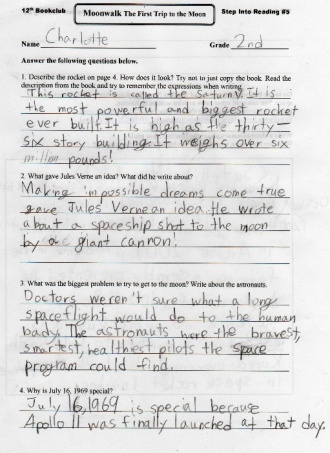 12th Bookclub
Moonwalk The First Trip to the Moon
Step Into Reading #5
Name Charlotte
Grade 2nd
Answer the following questions below.
1. Describe the rocket on page 4. How does it look? Try not to just copy the book. Read the
description from the book and try to remember the expressions when writing.
This rocket is called the Saturn V. It is
the most powerful and biggest rocket
ever built. It is high as the thirty-
six story building. It weighs over six
million pounds!
2. What gave Jules Verne an idea? What did he write about?
Making impossible dreams come true
gave Jules Verne an idea. He wrote
about a spaceship shot to the moon
by a giant cannon!
3. What was the biggest problem to try to get to the moon? Write about the astronauts.
Doctors weren't sure what a long
spaceflight would do to the human
body. The astronauts were the bravest,
smartest, healthiest pilots the space
program could find.
4. Why is July 16, 1969 special?
July 16, 1969 is special because
Apollo 11 was finally launched at that day.